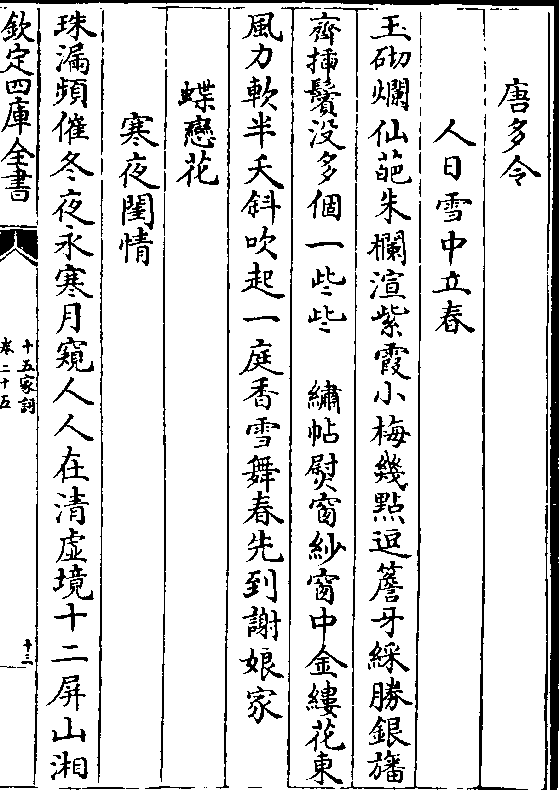 唐多令
人日雪中立春
玉砌爛仙葩朱欄渲紫霞小梅幾點逗簷牙綵勝銀旛
齊揷鬢没多個一些些　繡帖熨窗紗窗中金縷花東
風力軟半天斜吹起一庭香雪舞春先到謝娘家
蝶戀花
寒夜閨情
珠漏頻催冬夜永寒月窺人人在清虛境十二屏山湘
欽定四庫全書
十五家詞
卷二十五
十三